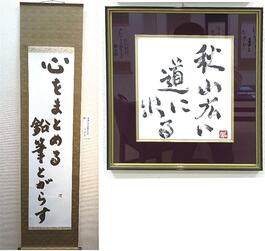 心をまとめる
鉛筆とがらす
秋山広い
道に
出る